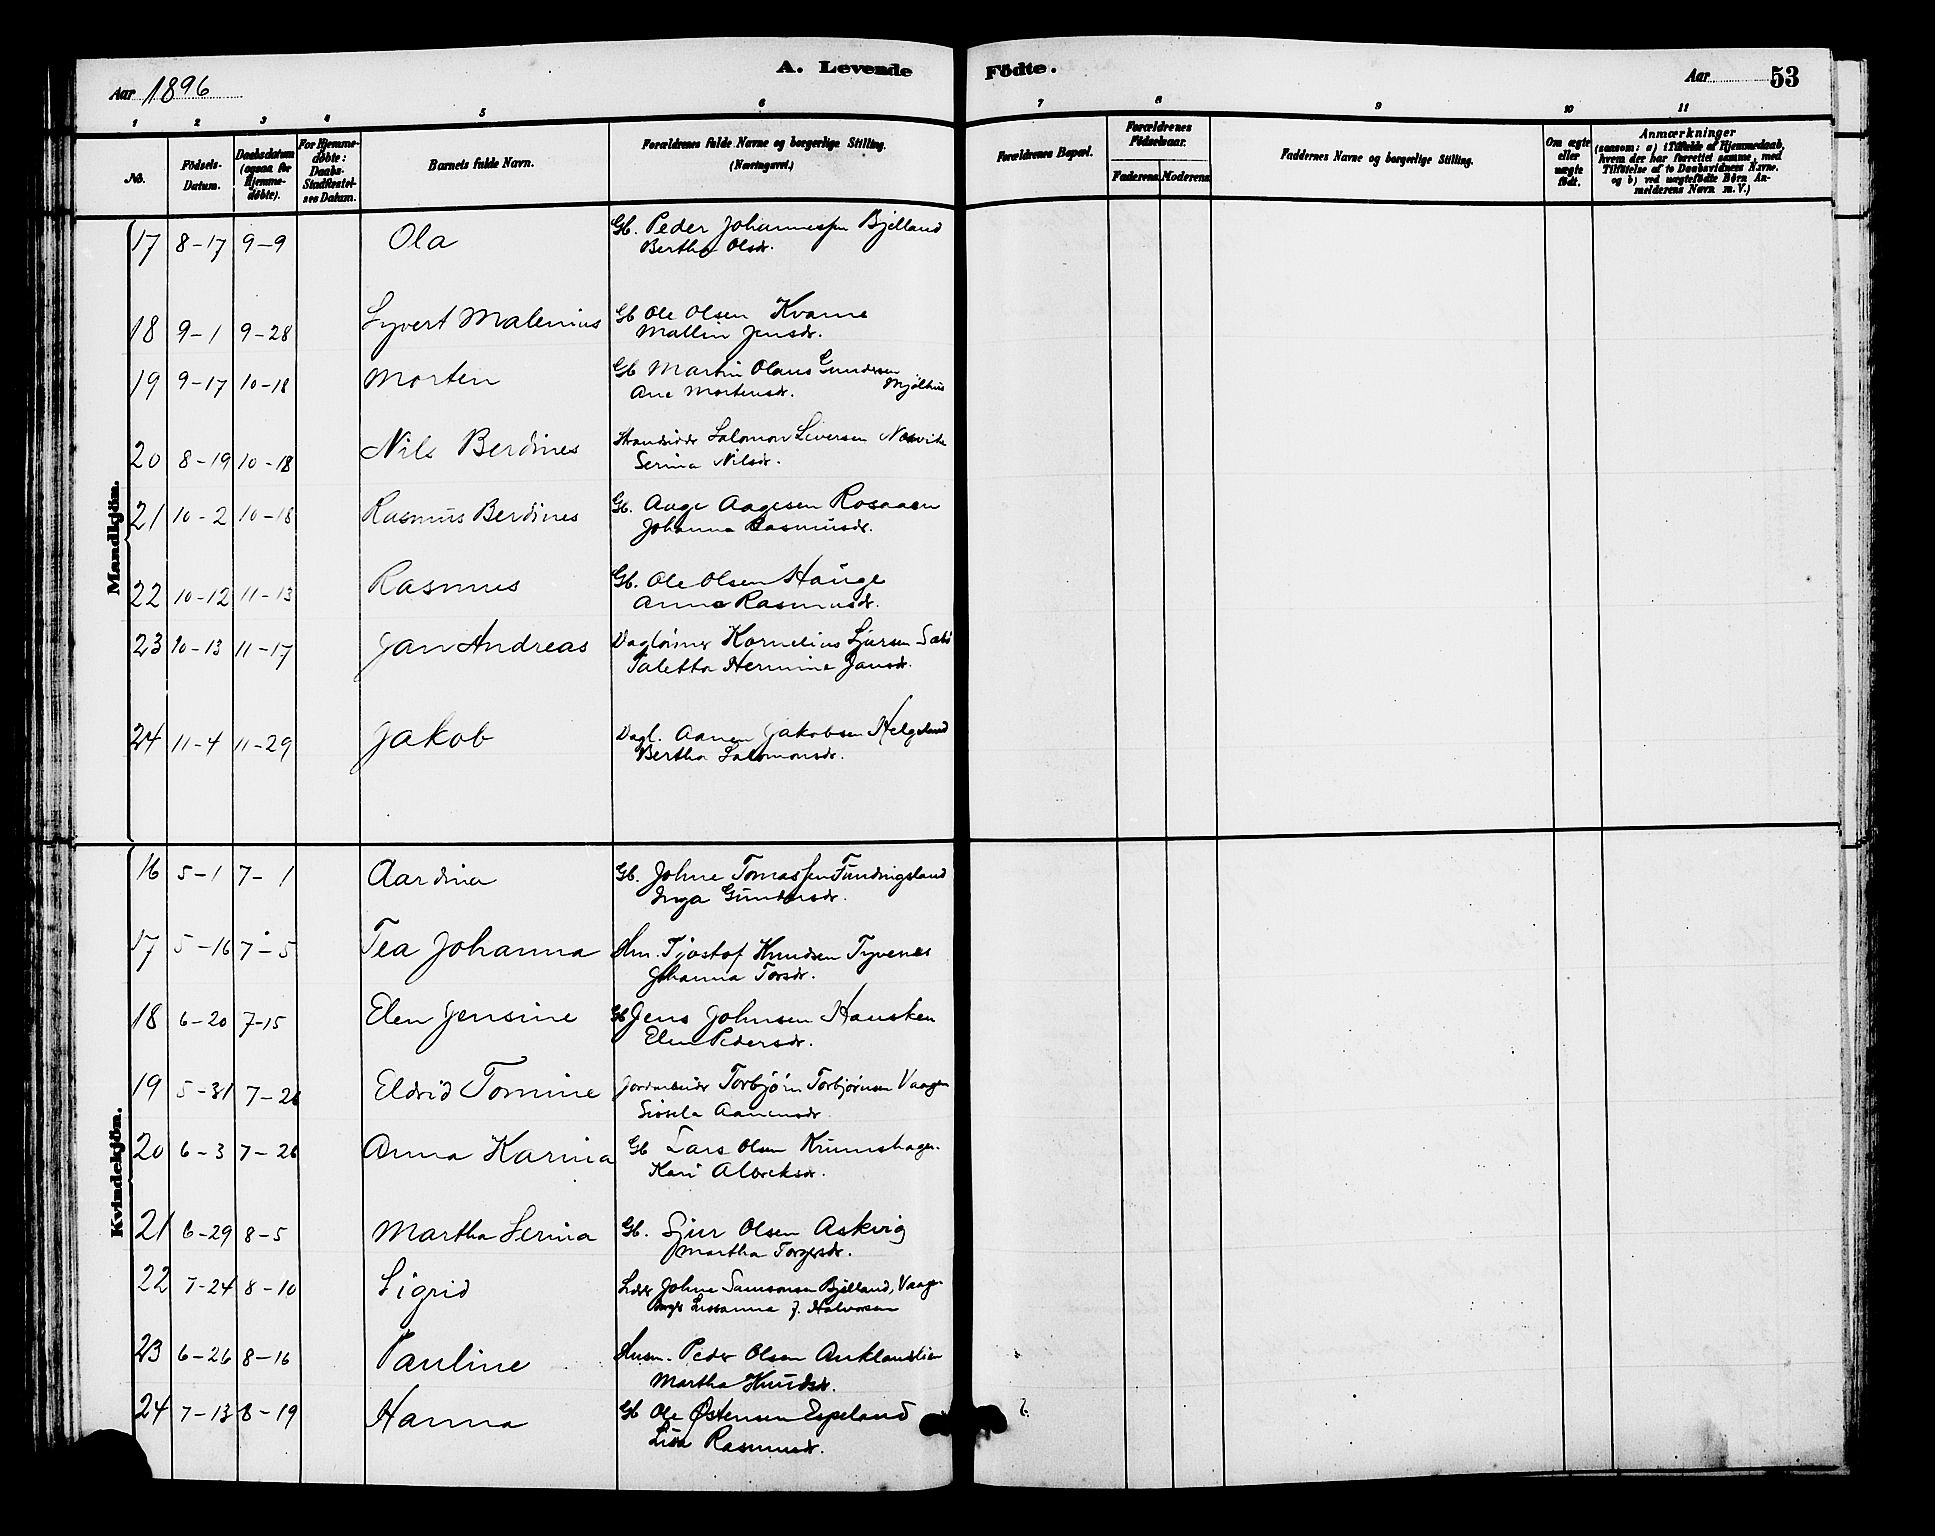 A. Levende Födte.
Aar 1896
Aar 53
1 2 3 4 5 6 7 8 9 10 11
No.
Födsels-Datum.
Daabsdatum (ogsaa for Hjemmedöbte).
For Hjemmedöbte: Daabs-Stadfæstelses Datum.
Barnets fulde Navn.
Forældrenes fulde Navne og borgerlige Stilling.
(Næringsvei.)
Forældrenes Bopæl.
Forældrenes Födselsaar.
Faderens. Moderens.
Faddernes Navne og borgerlige Stilling.
Om ægte eller uægte födt.
Anmærkninger
(saasom: a) i Tilfælde af Hjemmedaab, hvem der har forrettet samme, med Tilföielse af to Daabsvidners Navne, og b) ved uægtefödte Börn Anmelderens Navn m. V.)
Mandkjön.
17 8-17 9-9 Ola Gb. Peder Johannessen Bjelland
Bertha Olsdr.
18 9-1 9-28 Syvert Malenius Gb Ole Olsen Kvame
Mallin Jensdr.
19 9-17 10-18 Morten Gb Martin Olaus Gundersen Mjølhus
Ane Mortensdr.
20 8-19 10-18 Nils Berdines Strandsidder Salomon Siversen Nesvik
Serina Nilsdr.
21 10-2 10-18 Rasmus Berdines Gb. Aage Aagesen Rosaaen
Johanna Rasmusdr.
22 10-12 11-13 Rasmus Gb. Ole Olsen Hauge
Anna Rasmusdr.
23 10-13 11-17 Jan Andreas Daglønner Kornelius Sjursen
Taletta Hermine Jansdr.
24 11-4 11-29 Jakob Dagl. Aanen Jakobsen Helgeland
Bertha Salomonsdr.
Kvindekjön.
16 5-1 7-1 Aardina Gb. Johne Tomassen Fundingsland
Inga Gundersdr.
17 5-16 7-5 Tea Johanna Hm. Tjostof Knudsen Tyvenes
Johanna Torsdr.
18 6-20 7-15 Elen Jensine Gb Jens Johnsen Hausken
Elen Pedersdr.
19 5-31 7-26 Eldrid Tomine Jordarbeider Torbjørn Torbjørnsen Vaagen
Sissela Aanensdr.
20 6-3 7-26 Anna Karina Gb Lars Olsen Krumshagen.
Kari Albrektsdr.
21 6-29 8-5 Martha Serina Gb. Sjur Olsen Askvig
Martha Torgersdr.
22 7-24 8-10 Sigrid Johne Samsonsen Bjelland, Vaagen
Susanna J. Halvorsen
23 6-26 8-16 Pauline Husm. Peder Olsen Auklandslien
Martha Knudsdr.
24 7-13 8-19 Hanna Gb Ole Østensen Espeland
Lisa Rasmusdr.